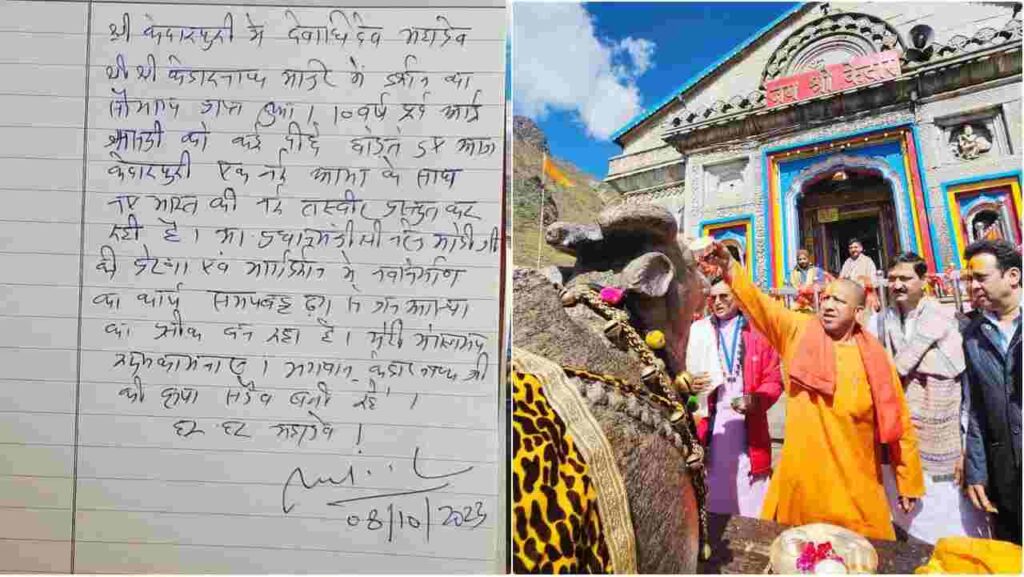 श्री केदारपुरी मे देवाधिदेव महादेव
श्री श्री केदारनाथ मन्दिर में दर्शन का
सौभाग्य प्राप्त हुआ । १०वर्ष पूर्व आई
त्रासदी को पीछे छोड़ते हुए आज
केदारपुरी एक नई आभा के साथ
नए भारत की नई तस्वीर प्रस्तुत कर
रही है । मा. प्रधानमंत्री श्री नरेन्द्र मोदी जी
की प्रेरणा एवं मार्गदर्शन में नवनिर्माण
का कार्य समयबद्ध ढंग से जन आस्था
का प्रतीक बन रहा है । मेरी मंगलमय
शुभकामनाएं । भगवान केदारनाथ जी
की कृपा सदैव बनी रहे ।
हर हर महादेव !
08/10/2023
जय श्री केदार